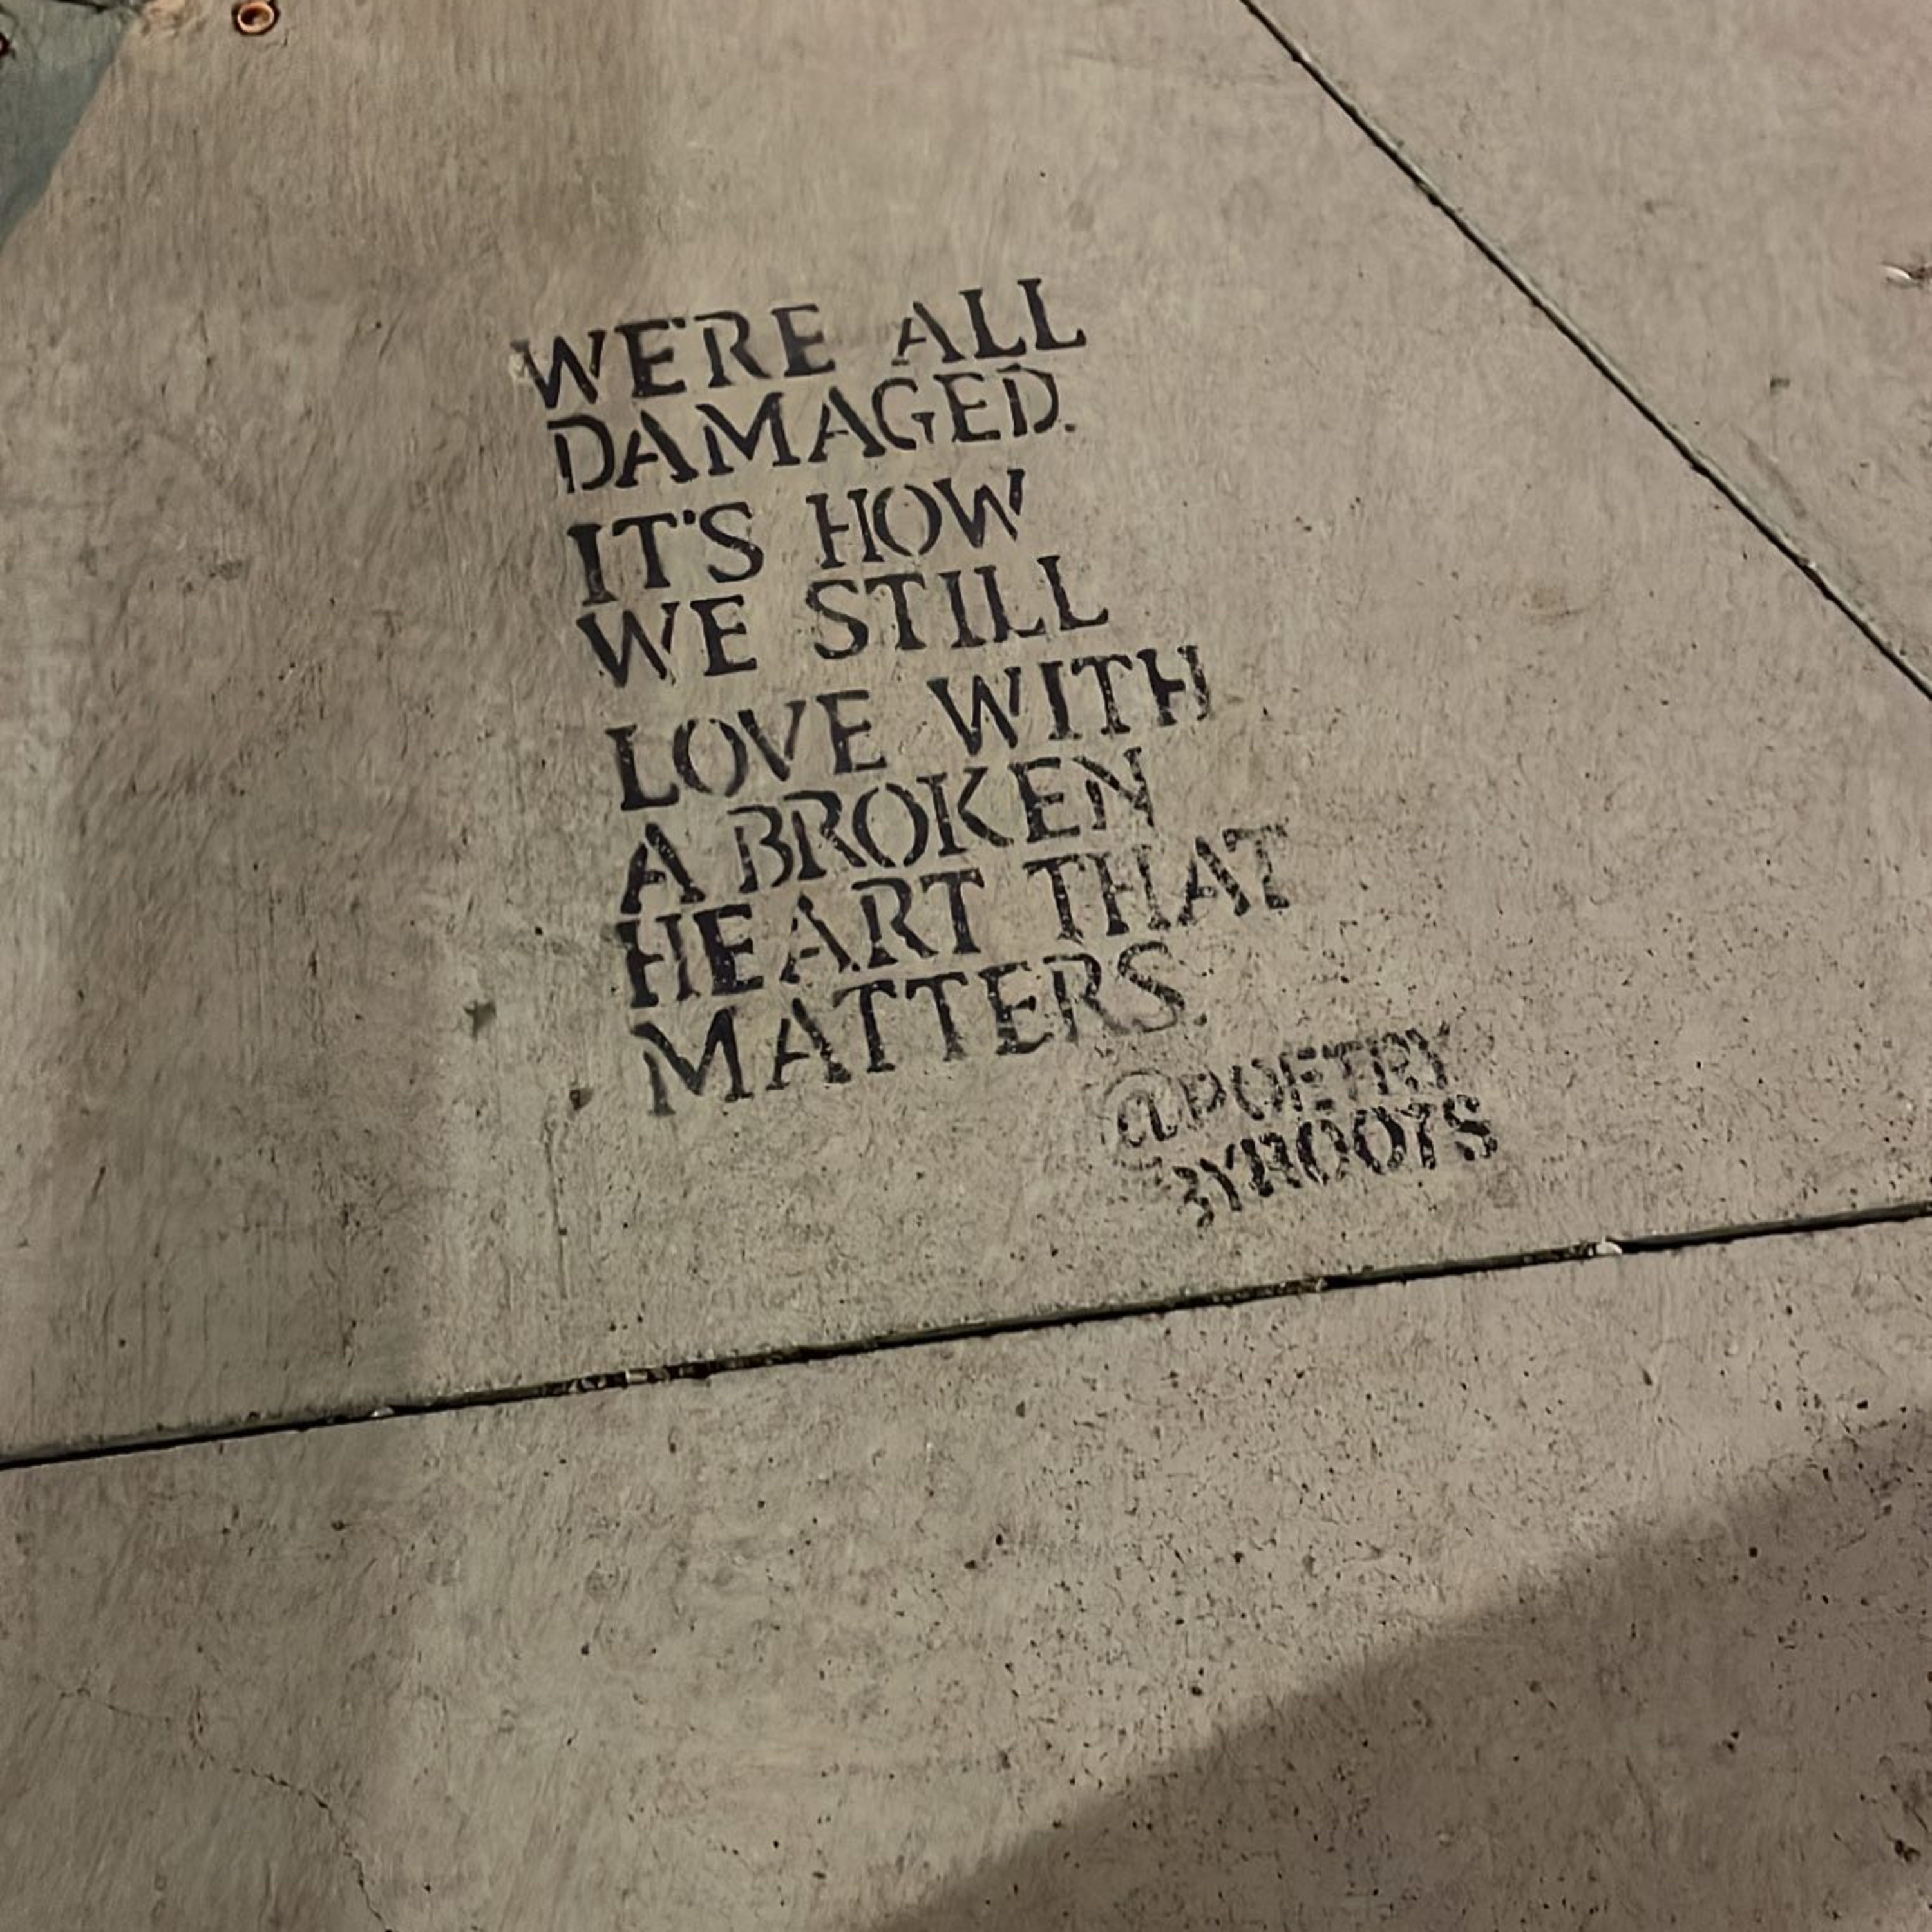 WE'RE ALL
DAMAGED.
IT'S HOW
WE STILL
LOVE WITH
A BROKEN
HEART THAT
MATTERS.
@POETRY
BYROOTS